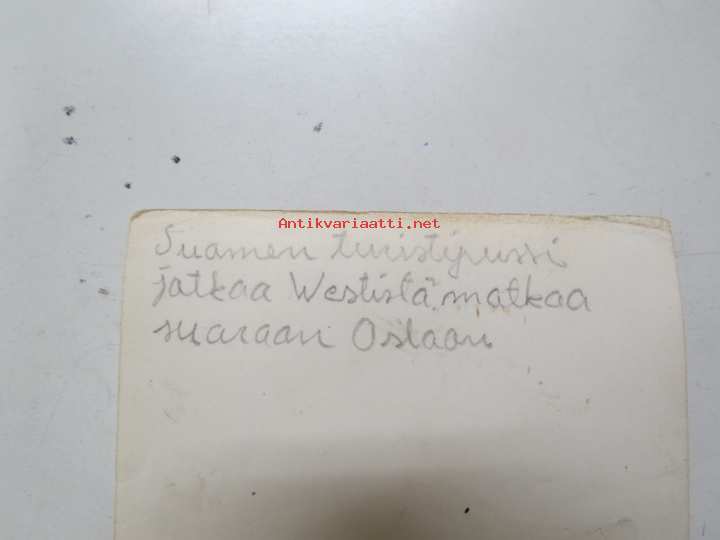 Antikvariaatti.net
Suomen turistipussi
jatkaa Westistä matkaa
suaraan Osloon